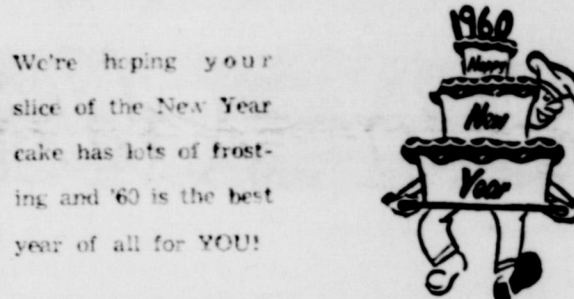 We're hoping your
slice of the New Year
cake has lots of frost-
ing and '60 is the best
year of all for YOU!
1960
Happy
New
Year